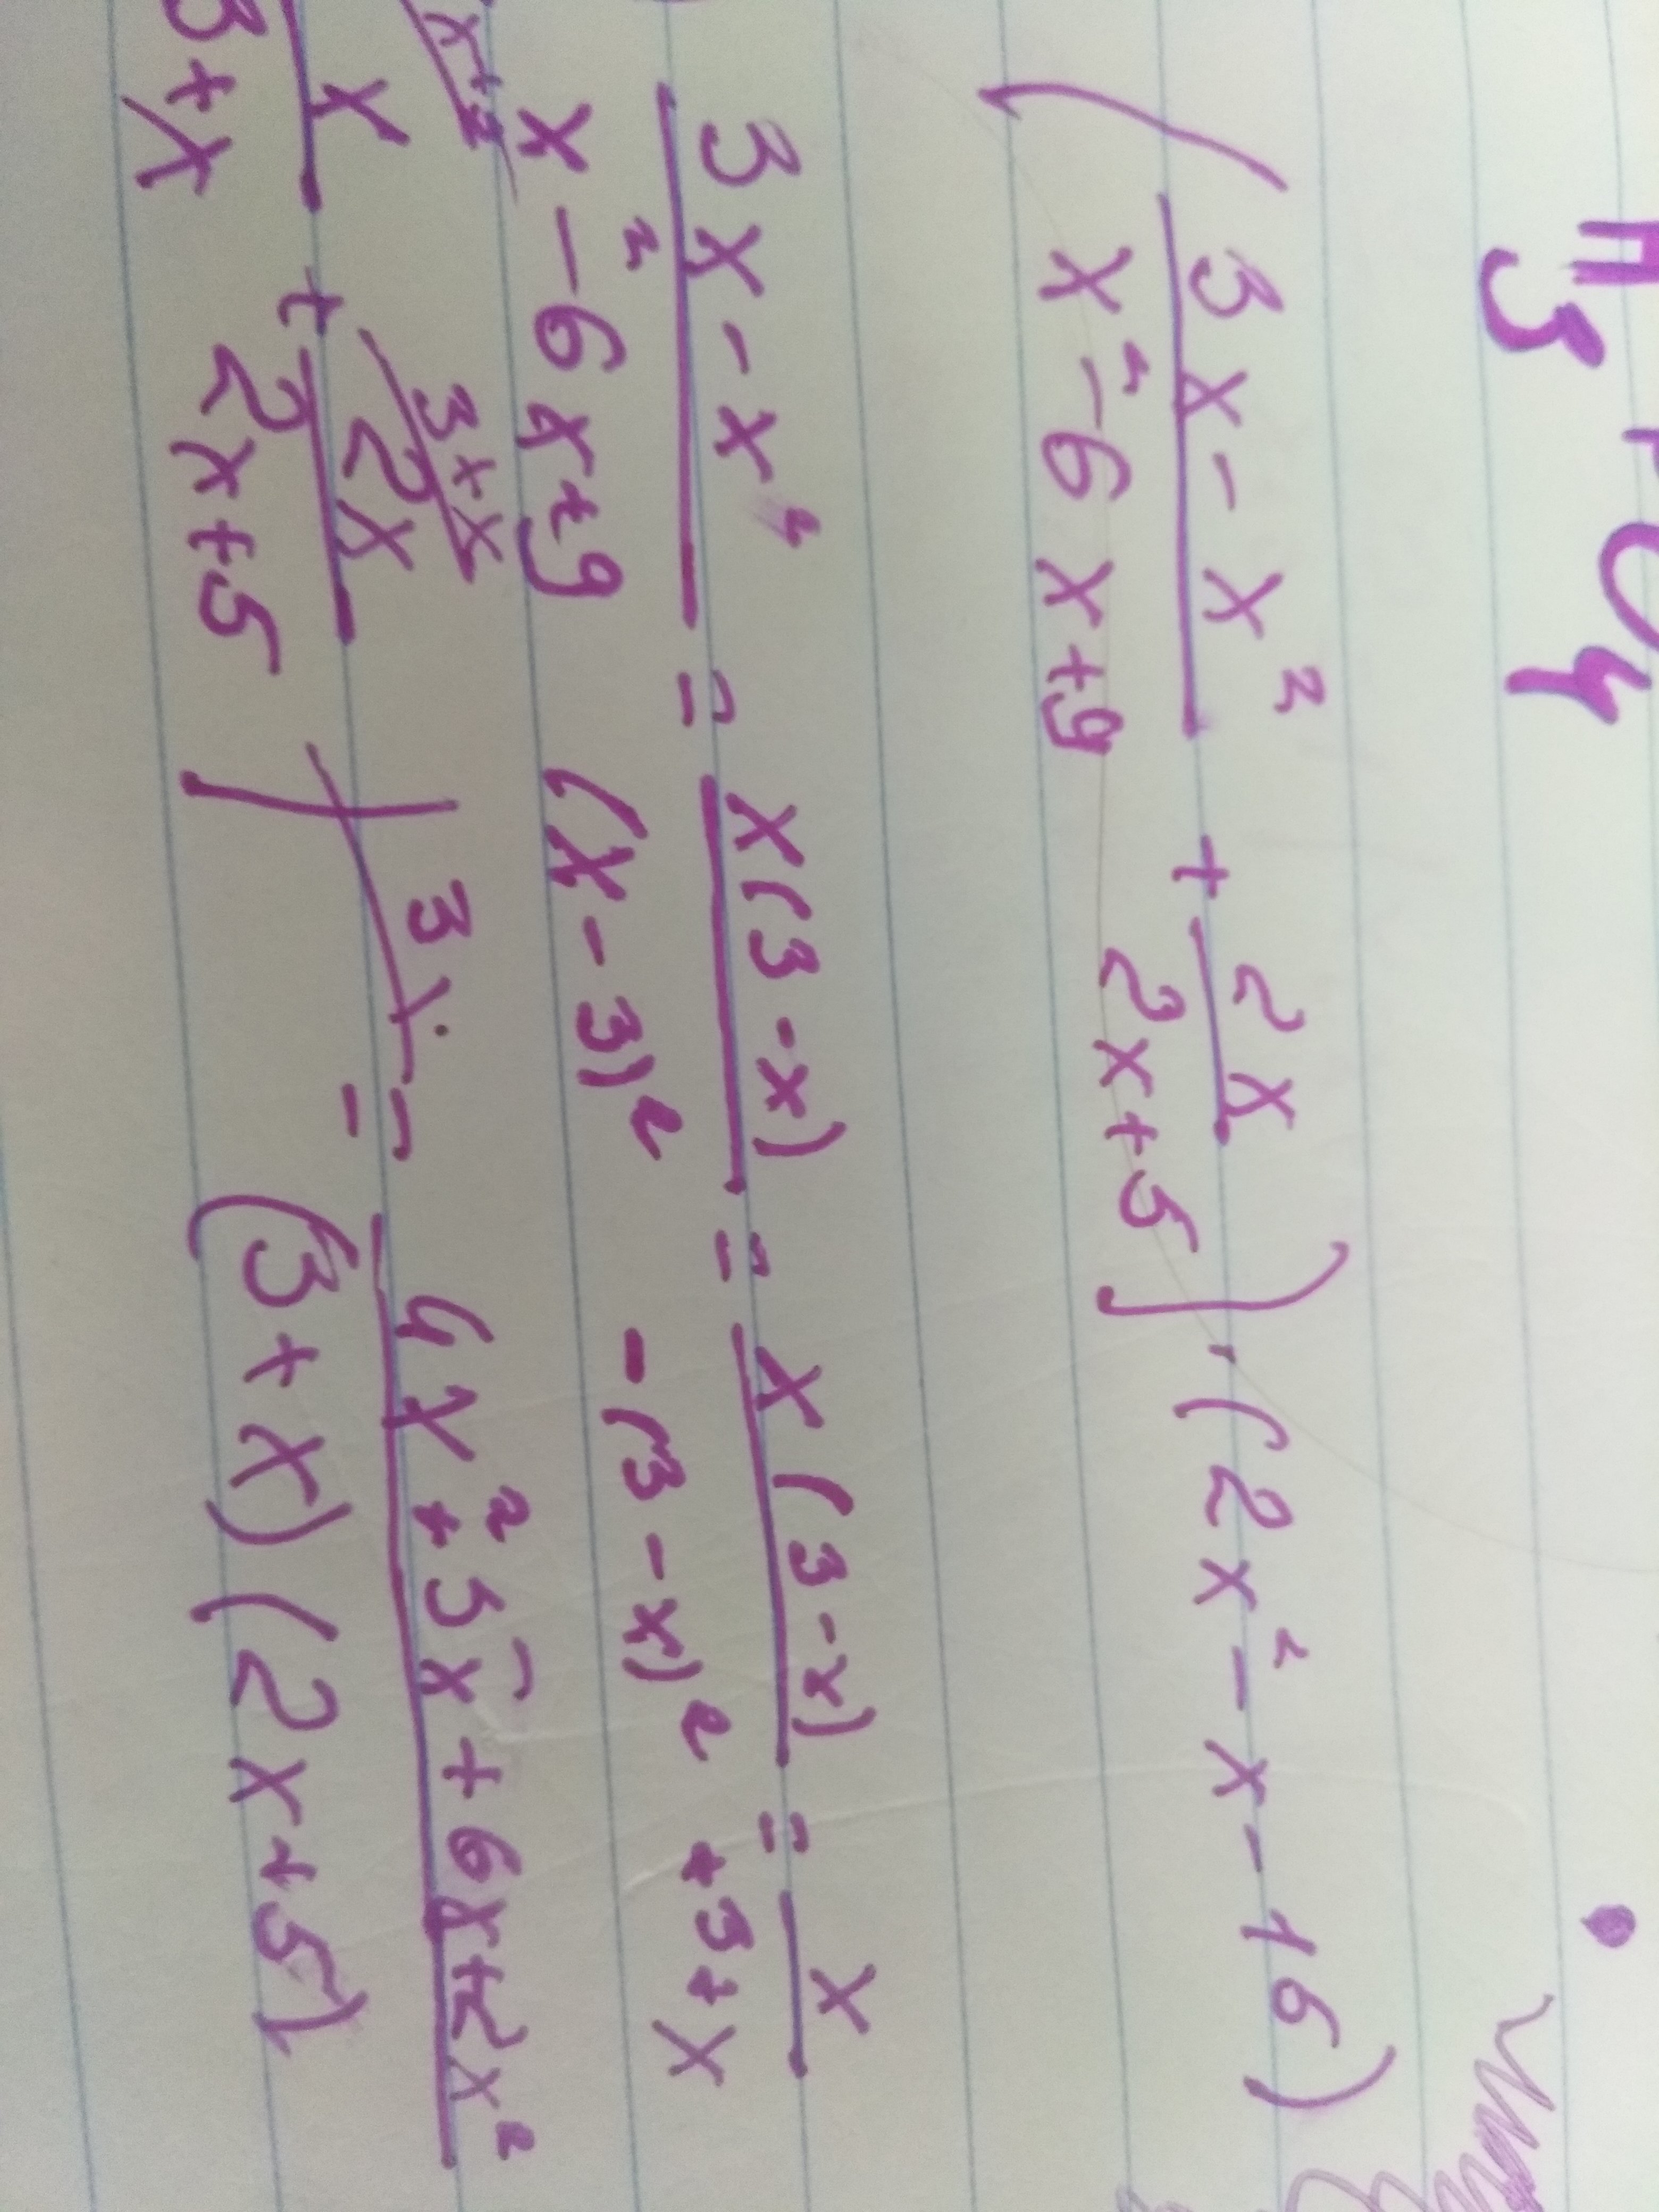 H₃PO₄
(3x - x²)/(x² - 6x + 9) + 2x/(2x + 5)) · (2x² - x - 16)
(3x - x²)/(x² - 6x + 9) = x(3 - x)/(x - 3)² = x(3 - x)/-(3 - x)² = x/+3+x
x/(3 + x) + 2x/(2x + 5) = (4x² + 5x + 6x + 2x²)/((3 + x)(2x + 5))